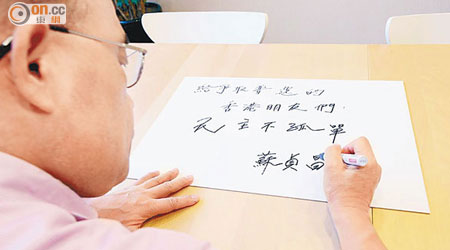 on.cc
東網
給爭取普選的
香港朋友們．
民主不孤單
蘇貞昌